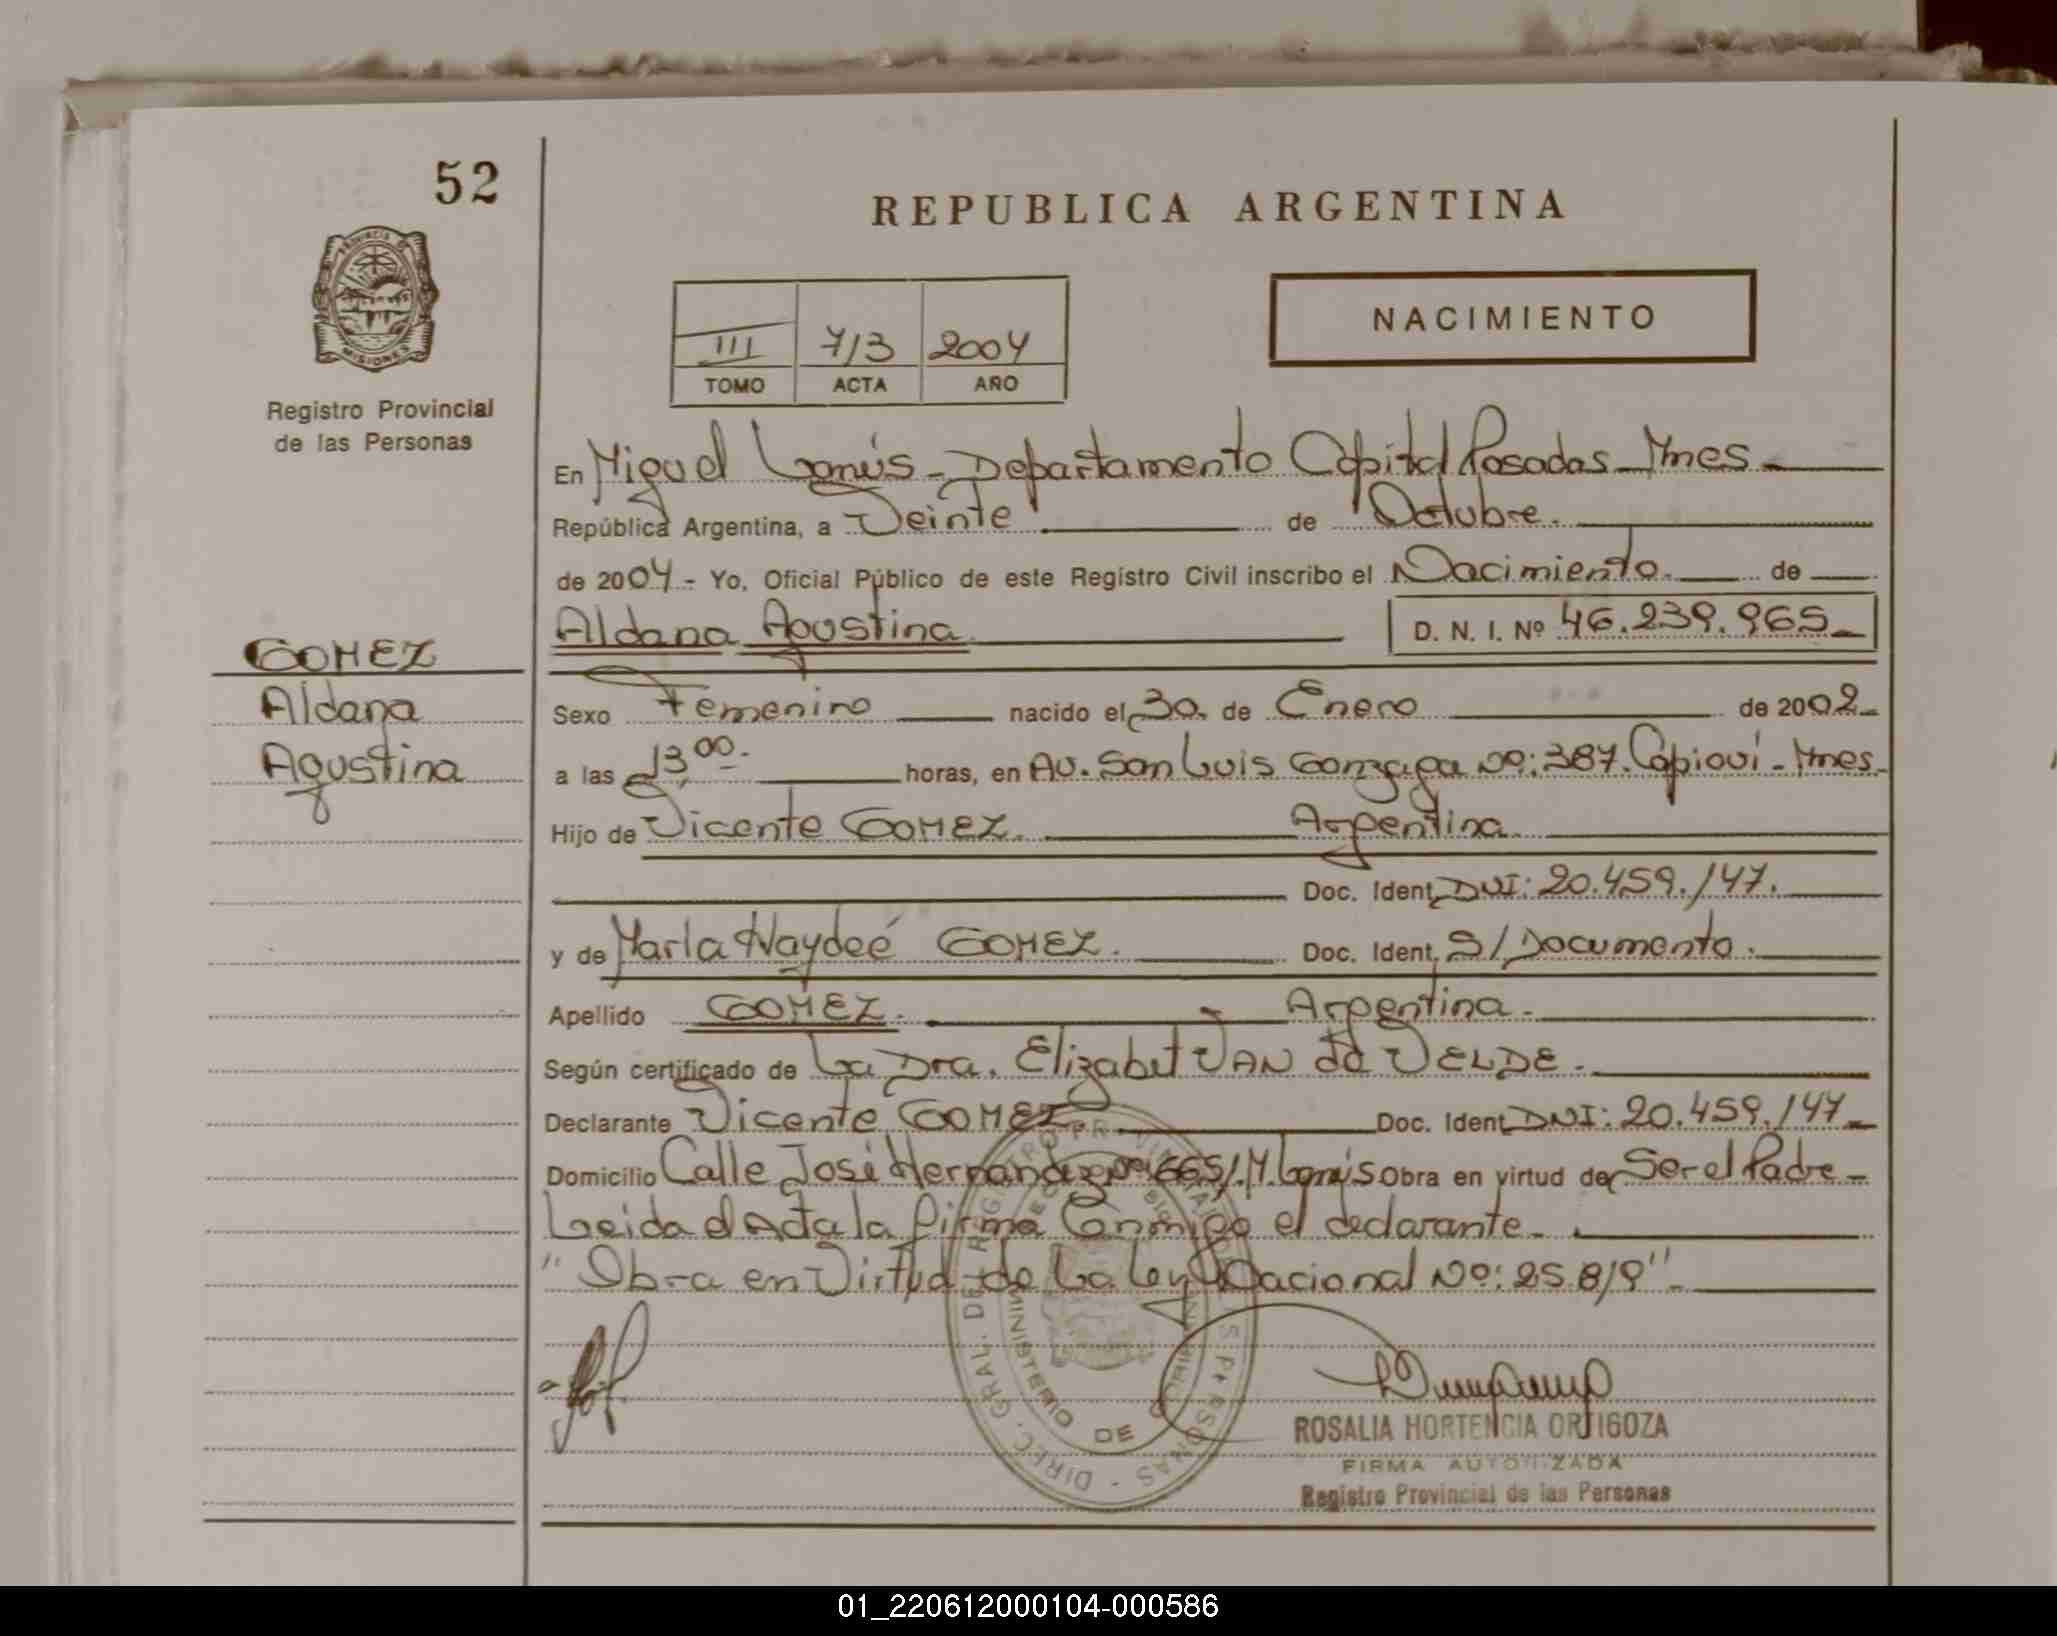 52
REPUBLICA ARGENTINA
PROVINCIA DE
MISIONES
Registro Provincial
de las Personas
III 713 2004
TOMO ACTA AÑO
NACIMIENTO
En Miguel Lanús - Departamento Capital Posadas - Mnes -
República Argentina, a Veinte de Octubre.
de 2004.- Yo, Oficial Público de este Registro Civil inscribo el Nacimiento. de
Aldana Agustina D. N. I. Nº 46.239.965_
GOMEZ
Aldana
Agustina
Sexo Femenino nacido el 30. de Enero de 2002_
a las 13,00. horas, en Av. San Luis Gonzaga Nº: 387. Capioví - Mnes-
Hijo de Vicente GOMEZ. Argentina
Doc. Ident. DNI: 20.459.147.
y de María Haydeé GOMEZ. Doc. Ident. S/Documento.
Apellido GOMEZ. Argentina.
Según certificado de La Dra. Elizabet VAN de VELDE.
Declarante Vicente GOMEZ Doc. Ident. DNI: 20.459.147_
Domicilio Calle José Hernandez Nº 665/M. Lanús Obra en virtud de Ser el Padre -
Leida el Acta la firma Conmigo el declarante -
"Obra en Virtud de La Ley Nacional Nº: 25.819"-
DIREC. GRAL. DEL REGISTRO PROVINCIAL DE LAS PERSONAS
MINISTERIO DE
ROSALIA HORTENCIA ORTIGOZA
FIRMA AUTORIZADA
Registro Provincial de las Personas
01_220612000104-000586